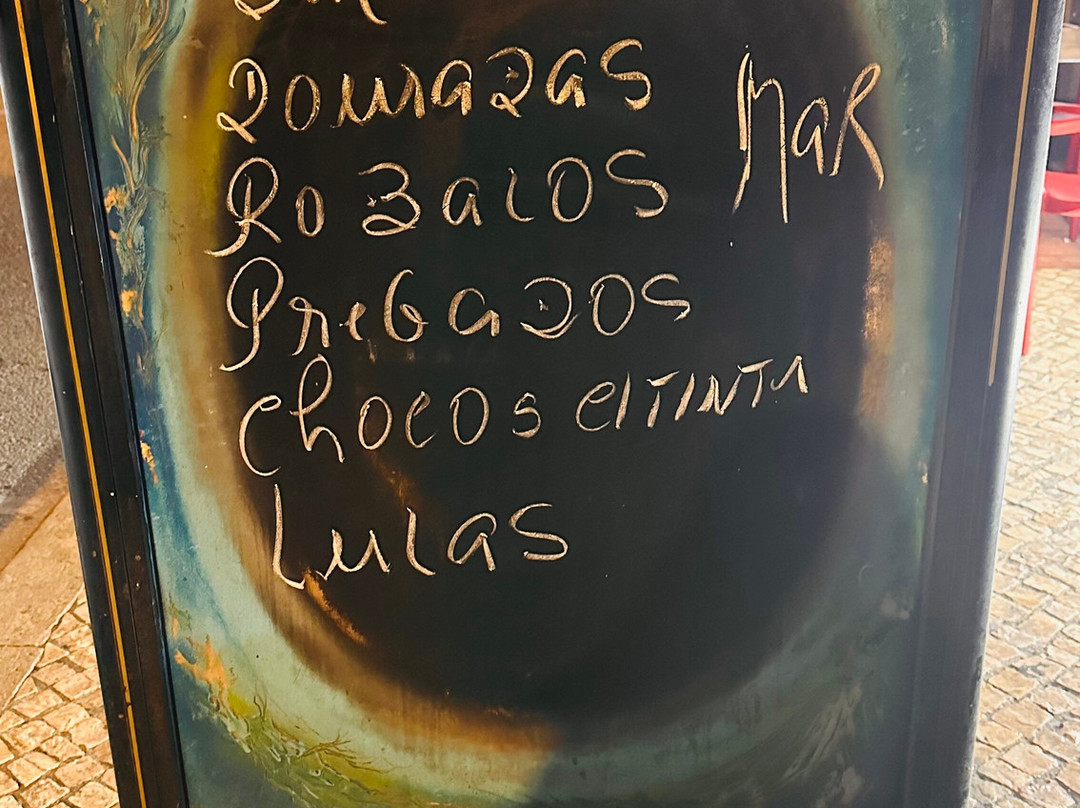 Douradas
Mar
Robalos
Pregados
Chocos c/TINTA
Lulas